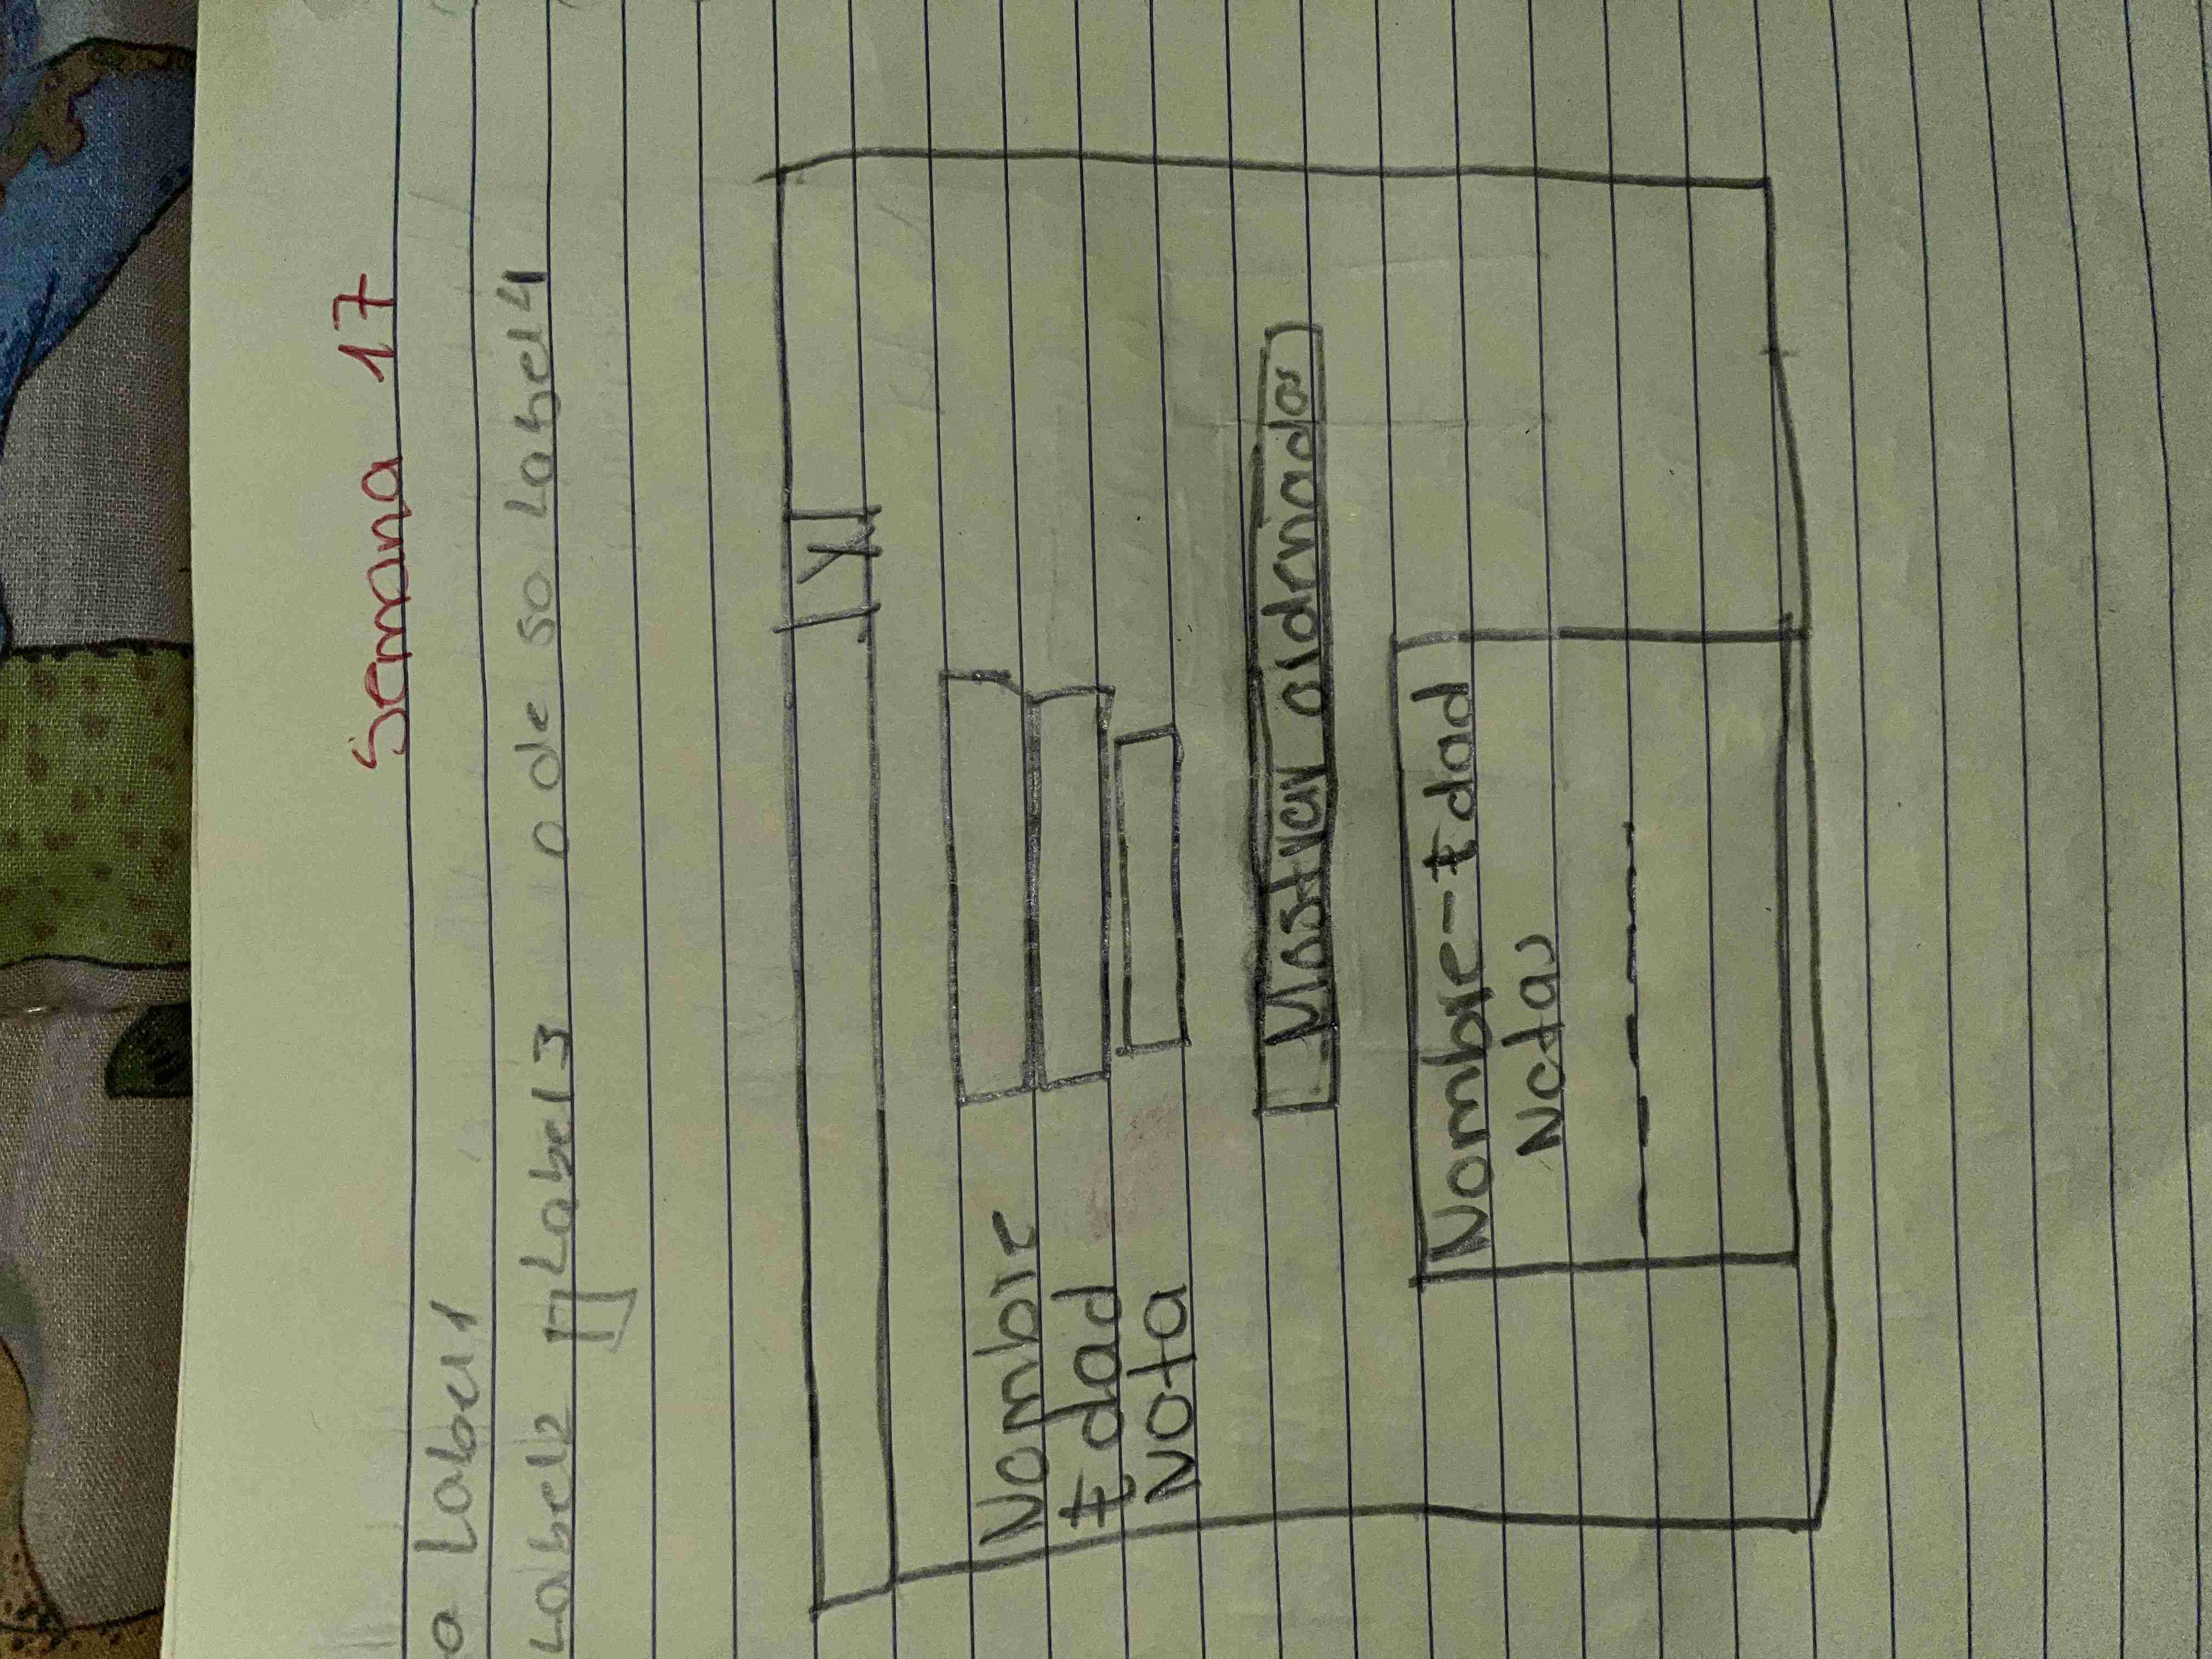 Semana 17
a Label1
Label2 Label3 o de so Label4
X
Nombre
Edad
Nota
Mostrar ordenados
Nombre-Edad
Notas